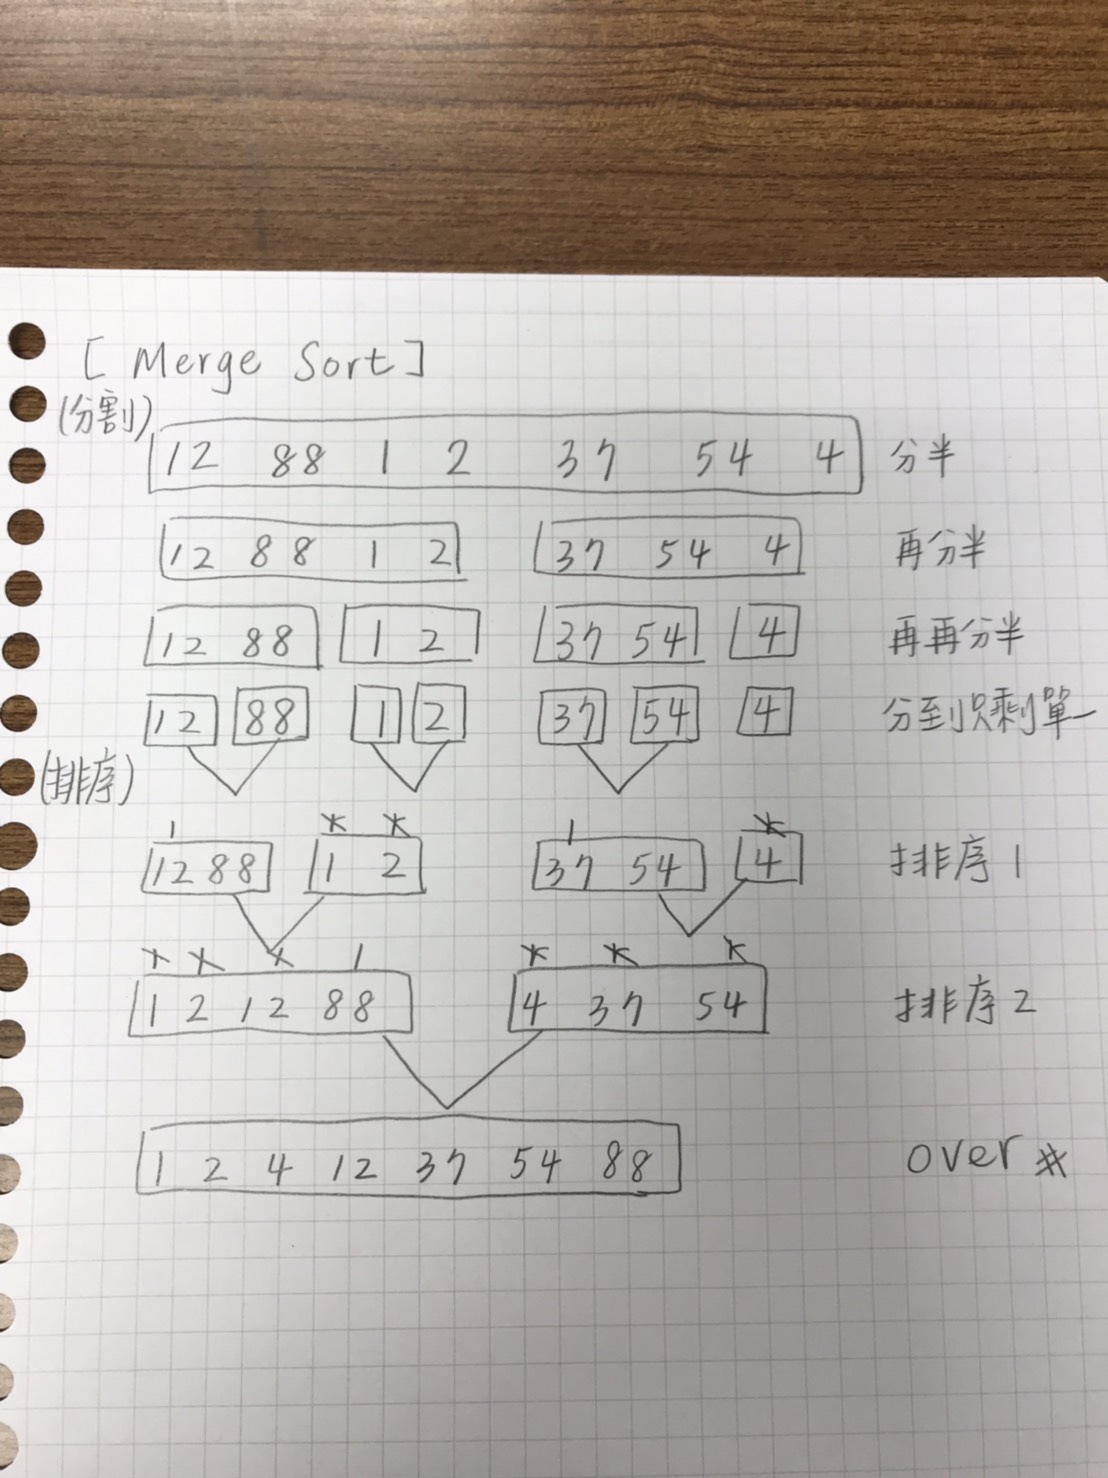 [ Merge Sort ]
(分割)
12 88 1 2 37 54 4 分半
12 88 1 2 37 54 4 再分半
12 88 1 2 37 54 4 再再分半
12 88 1 2 37 54 4 分到只剩單一
(排序)
12 88 1 2 37 54 4 排序1
1 2 12 88 4 37 54 排序2
1 2 4 12 37 54 88 over #